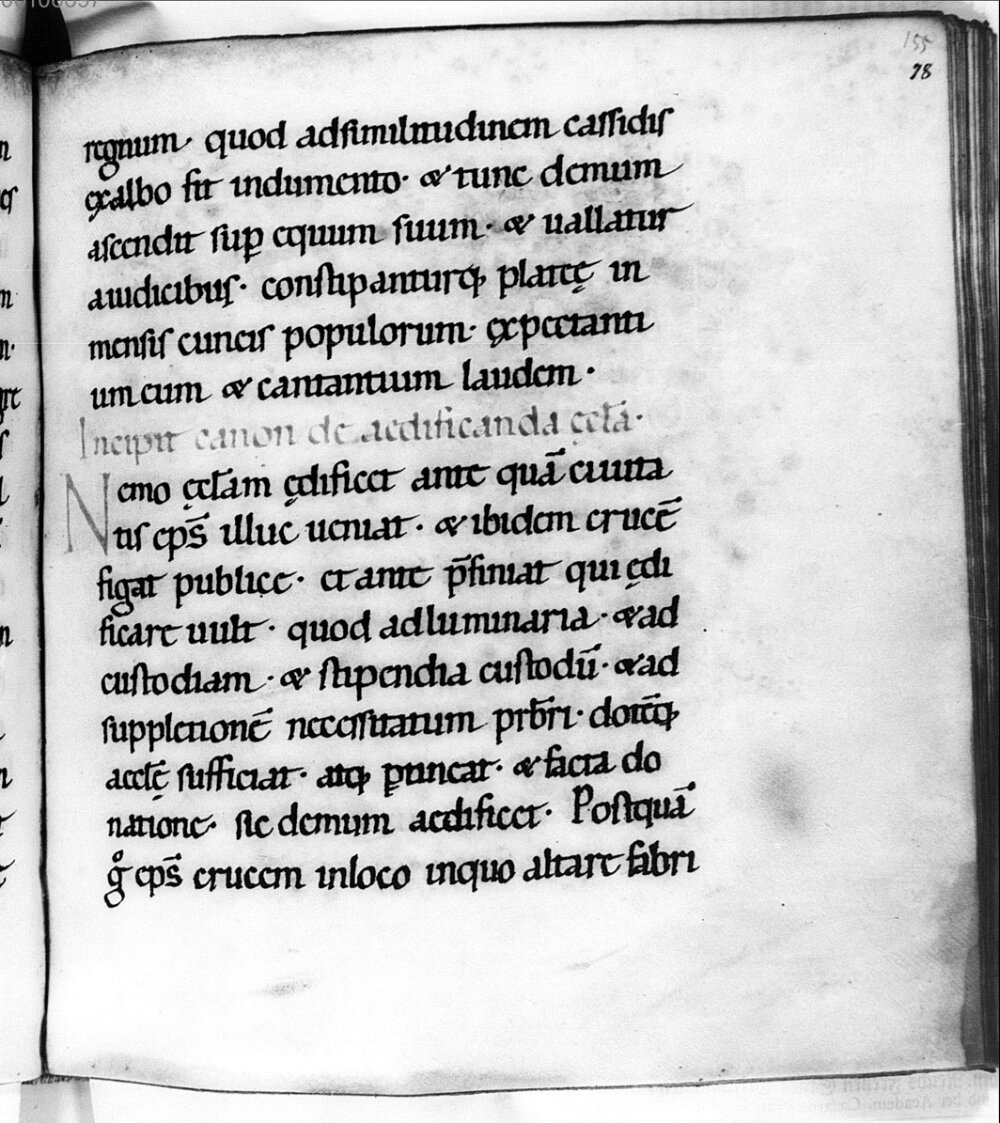 155
78
regnum· quod adsimilitudinem cassidis
ęxalbo fit indumento· & tunc demum
ascendit sup̱ equum suum· & uallatur
aiudicibus· constipanturq; plateę in
mensis cuneis populorum· ęxpectanti
um eum & cantantium laudem·
Incipit canon de aedificanda ęctā·
Nemo ęct̄am ędificet ante quā ciuita
tis ep̄s illuc ueniat· & ibidem crucē
figat publice· et ante p̄finiat qui ędi
ficare uult· quod adluminaria· & ad
custodiam· & stipendia custodū· & ad
suppletionē necessitatum prb̄ri· dotēq;
aecl̄ę sufficiat· atq; p̱tineat· & facta do
natione· sic demum aedificet· Postquā
gͦ ep̄s crucem inloco inquo altare fabri